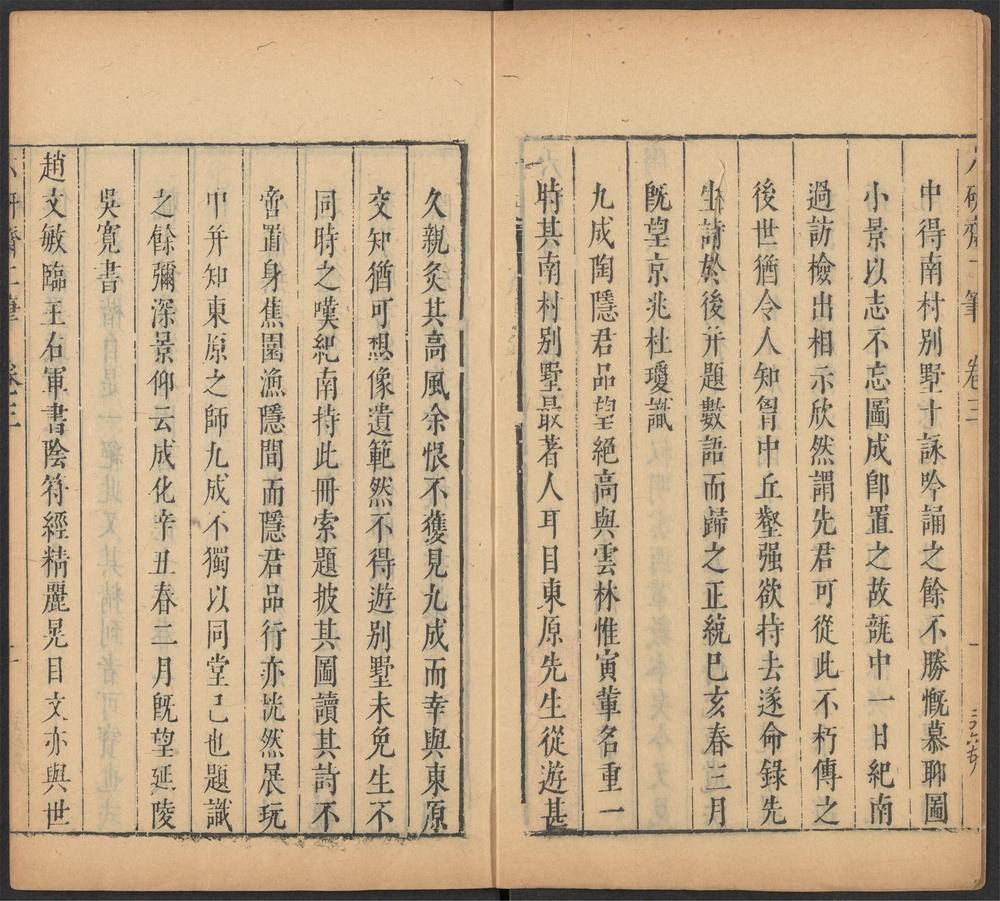 六硯齋二筆 卷三
中得南村別墅十詠吟誦之餘不勝慨慕聊圖
小景以志不忘圖成卽置之故瓻中一日紀南
過訪檢出相示欣然謂先君可從此不朽傳之
後世猶令人知胷中丘壑强欲持去遂命錄先
生詩於後并題數語而歸之正統巳亥春三月
旣望京兆杜瓊識
九成陶隱君品望絕高與雲林惟寅輩名重一
時其南村別墅最著人耳目東原先生從遊甚
久親炙其高風余恨不獲見九成而幸與東原
交知猶可想像遺範然不得遊別墅未免生不
同時之嘆紀南持此冊索題披其圖讀其詩不
啻置身焦園漁隱間而隱君品行亦恍然展玩
中并知東原之師九成不獨以同堂已也題識
之餘彌深景仰云成化辛丑春二月旣望延陵
吳寬書
趙文敏臨王右軍書陰符經精麗晃目文亦與世
六研齋二筆 卷三